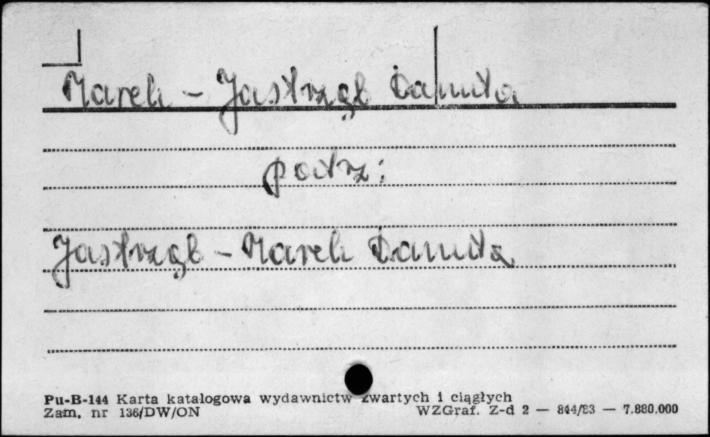 Marek - Jastrząb Danuta
patrz:
Jastrząb - Marek Danuta
Pu-B-144 Karta katalogowa wydawnictw zwartych i ciągłych
Zam. nr 136/DW/ON WZGraf. Z-d 2 — 844/83 — 7.880.000